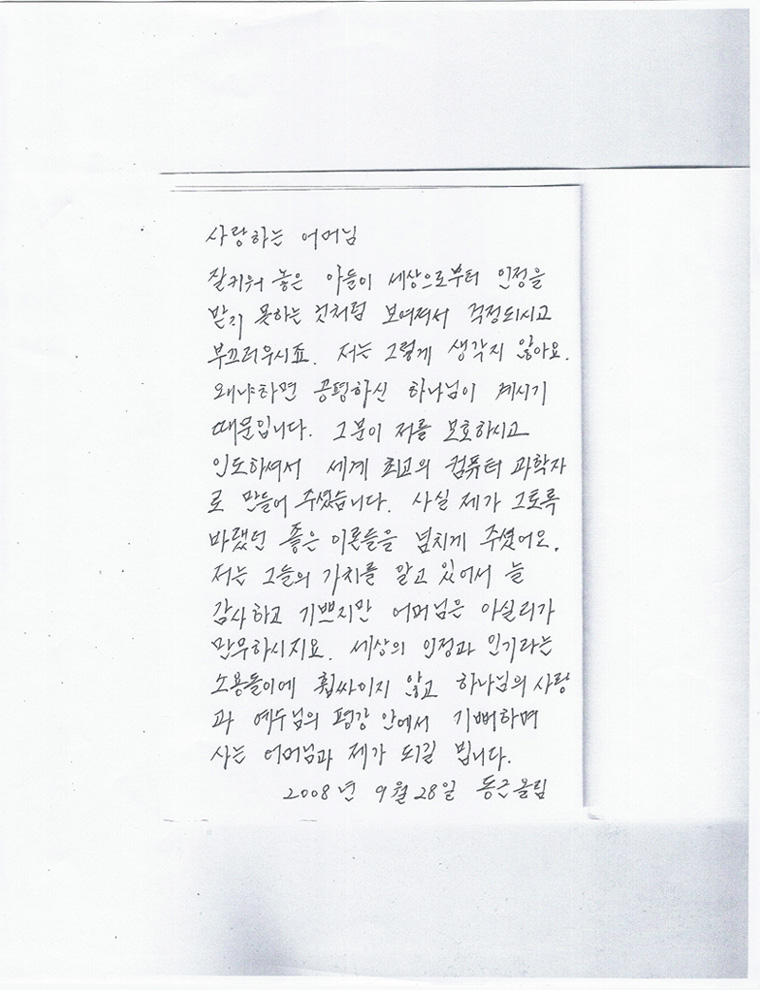 사랑하는 어머님
잘키워 놓은 아들이 세상으로부터 인정을
받지 못하는 것처럼 보여져서 걱정되시고
부끄러우시죠. 저는 그렇게 생각지 않아요.
왜냐하면 공평하신 하나님이 계시기
때문입니다. 그분이 저를 보호하시고
인도하셔서 세계 최고의 컴퓨터 과학자
로 만들어 주셨습니다. 사실 제가 그토록
바랬던 좋은 이론들을 넘치게 주셨어요.
저는 그들의 가치를 알고 있어서 늘
감사하고 기쁘지만 어머님은 아실리가
만무하시지요. 세상의 인정과 인기라는
소용돌이에 휩싸이지 않고 하나님의 사랑
과 예수님의 평강 안에서 기뻐하며
사는 어머님과 제가 되길 빕니다.
2008년 9월 28일 동근올림